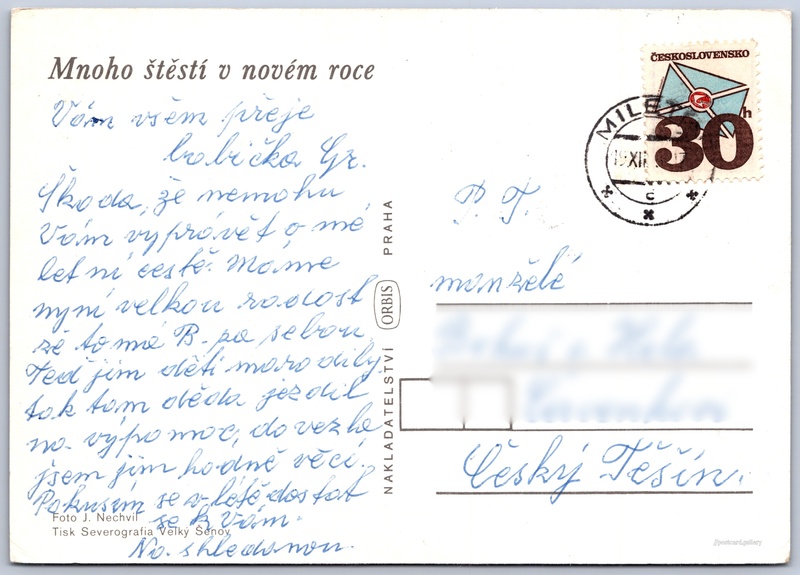 Mnoho štěstí v novém roce
Vám všem přeje
babička Gr.
Škoda, že nemohu
Vám vyprávět o mé
letní cestě. Máme
nyní velkou radost
že to má B. za sebou.
Teď jim děti marodily
tak tam děda jezdil
na výpomoc, dovezla
jsem jim hodně věcí.
Pokusím se v létě dostat
se k Vám.
Na shledanou.
Foto J. Nechvíl
Tisk Severografia Velký Šenov
NAKLADATELSTVÍ ORBIS PRAHA
ČESKOSLOVENSKO
30h
19.XII
P. T.
manželé
Český Těšín.
postcard.gallery